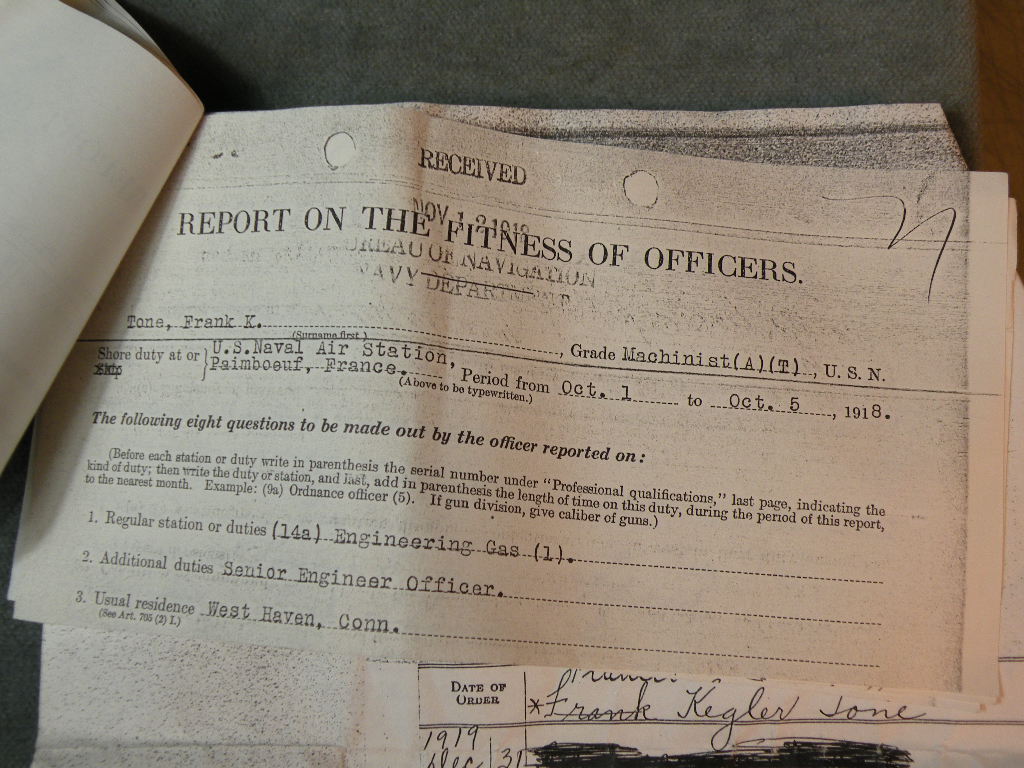 RECEIVED
NOV 1 2 1918
REPORT ON THE FITNESS OF OFFICERS.
BUREAU OF NAVIGATION
NAVY DEPARTMENT
Tone, Frank K. , Grade Machinist(A)(T) , U. S. N.
(Surname first.)
Shore duty at or Ship } U.S.Naval Air Station, Paimboeuf, France. , Period from Oct. 1 to Oct. 5 , 1918.
(Above to be typewritten.)
The following eight questions to be made out by the officer reported on:
(Before each station or duty write in parenthesis the serial number under "Professional qualifications," last page, indicating the
kind of duty; then write the duty or station, and last, add in parenthesis the length of time on this duty, during the period of this report,
to the nearest month. Example: (9a) Ordnance officer (5). If gun division, give caliber of guns.)
1. Regular station or duties (14a) Engineering Gas (1).
2. Additional duties Senior Engineer Officer.
3. Usual residence West Haven, Conn.
(See Art. 705 (2) I.)
DATE OF
ORDER
*Frank Kegler Tone
1919
Dec 31